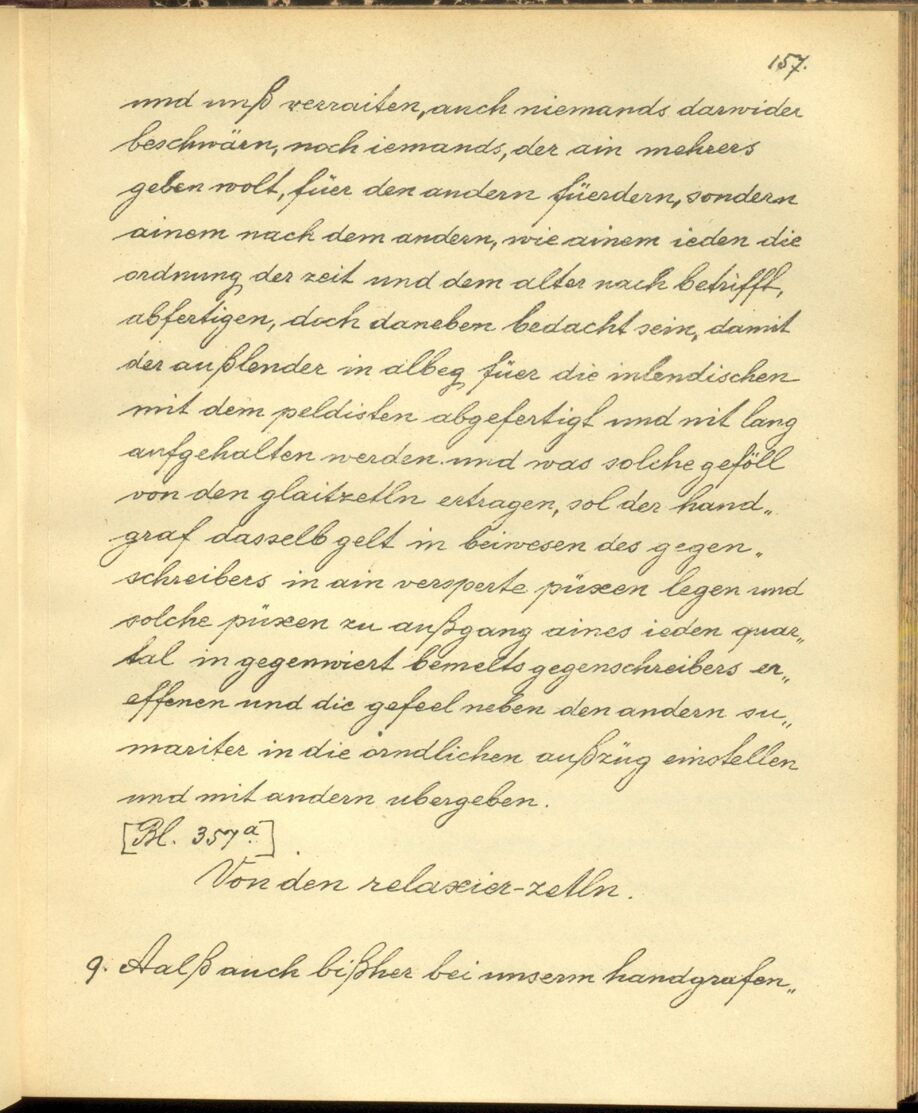 157.
und unß verraiten, auch niemands darwider
beschwärn, noch iemands, der ain mehrers
geben wolt, füer den andern füerdern, sondern
ainem nach dem andern, wie ainem ieden die
ordnung der zeit und dem alter nach betrifft,
abfertigen, doch daneben bedacht sein, damit
der außlender in albeg füer die inlendischen
mit dem peldisten abgefertigt und nit lang
aufgehalten werden. und was solche geföll
von den glaitzetln ertragen, sol der hand„
graf dasselb gelt in beiwesen des gegen„
schreibers in ain versperte püxen legen und
solche püxen zu außgang aines ieden quar„
tal in gegenwiert bemelts gegenschreibers er„
effenen und die gefeel neben den andern su„
mariter in die örndlichen außzüg einstellen
und mit andern ubergeben.
[Bl. 357a.]
Von den relaxier-zetln.
9. Aalß auch bißher bei unserm handgrafen„